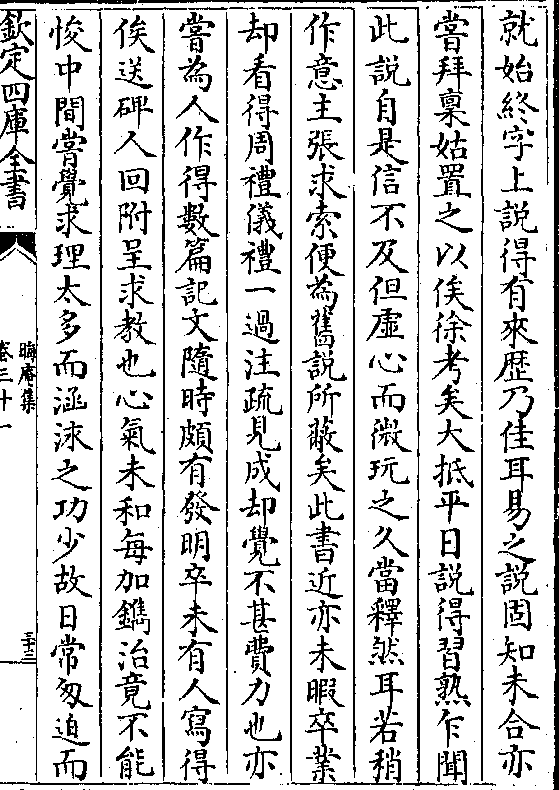 就始終字上説得有來歴乃佳耳易之説固知未合亦
嘗拜稟姑置之以俟徐考矣大抵平日説得習熟乍聞
此説自是信不及但虚心而微玩之久當釋然耳若稍
作意主張求索便為舊説所蔽矣此書近亦未暇卒業
却看得周禮儀禮一過注疏見成却覺不甚費力也亦
嘗為人作得數篇記文隨時頗有發明卒未有人寫得
俟送碑人回附呈求教也心氣未和每加鐫治竟不能
悛中間嘗覺求理太多而涵泳之功少故日常匆迫而
欽定四庫全書
晦庵集
卷三十一
三十三